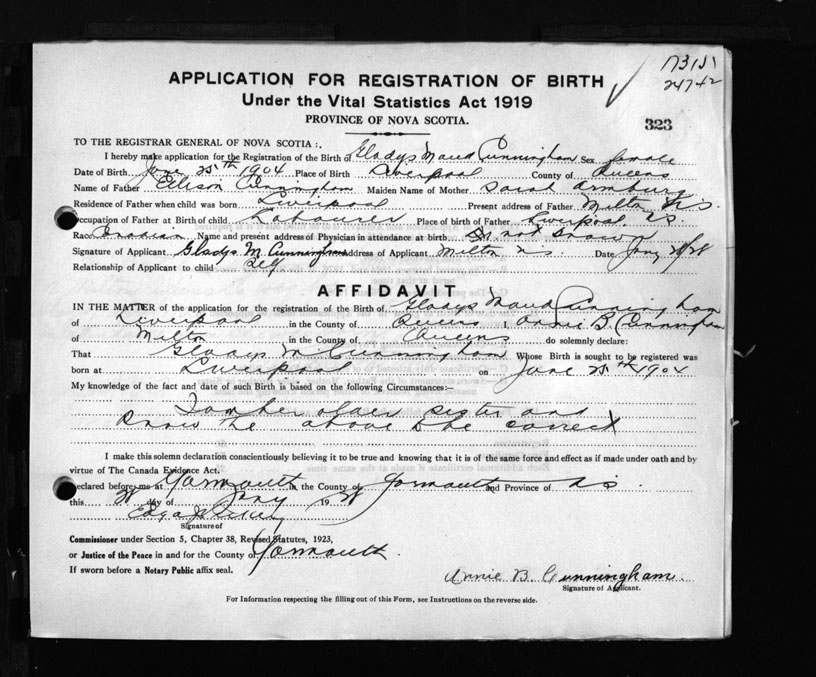 APPLICATION FOR REGISTRATION OF BIRTH
Under the Vital Statistics Act 1919
PROVINCE OF NOVA SCOTIA.
323
TO THE REGISTRAR GENERAL OF NOVA SCOTIA:.
I hereby make application for the Registration of the Birth of Gladys Maud Cunningham Sex female
Date of Birth June 25th 1904 Place of Birth Liverpool County of Queens
Name of Father Edison Cunningham Maiden Name of Mother Sarah Armburg
Residence of Father when child was born Liverpool Present address of Father Milton N.S.
Occupation of Father at Birth of child Labourer Place of birth of Father Liverpool N.S.
Race Name and present address of Physician in attendance at birth Do not know
Signature of Applicant Gladys M. Cunningham Address of Applicant Milton N.S. Date Jany
Relationship of Applicant to child Self
AFFIDAVIT
IN THE MATTER of the application for the registration of the Birth of Gladys Maud Cunningham
of Liverpool in the County of Queens I, Annie B. Cunningham
of Milton in the County of Queens do solemnly declare:
That Gladys M Cunningham Whose Birth is sought to be registered was
born at Liverpool on June 25th 1904
My knowledge of the fact and date of such Birth is based on the following Circumstances:—
I am her older sister and
know the above to be correct
I make this solemn declaration conscientiously believing it to be true and knowing that it is of the same force and effect as if made under oath and by
virtue of The Canada Evidence Act.
Declared before me at Yarmouth in the County of Yarmouth and Province of N.S.
this day of Jany 19
Signature of
Commissioner under Section 5, Chapter 38, Revised Statutes, 1923,
or Justice of the Peace in and for the County of Yarmouth.
If sworn before a Notary Public affix seal.
Annie B. Cunningham.
Signature of Applicant.
For Information respecting the filling out of this Form, see Instructions on the reverse side.